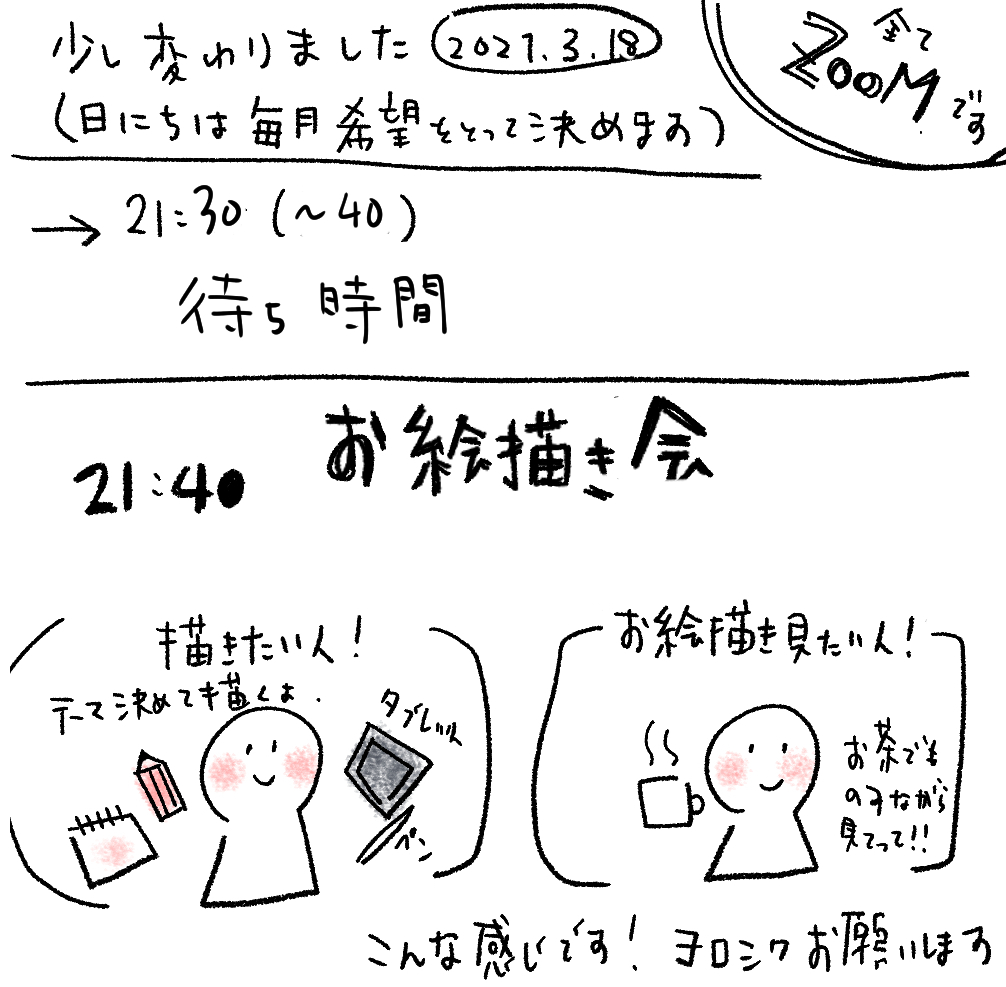 少し変わりました 2021.3.18
全て
ZOOM
です
(日にちは毎月希望をとって決めます)
→ 21:30 (~40)
待ち時間
21:40 お絵描き会
描きたい人!
テーマ決めて描くよ.
タブレット
ペン
お絵描き見たい人!
お茶でも
のみながら
見てって!!
こんな感じです! ヨロシクお願いします